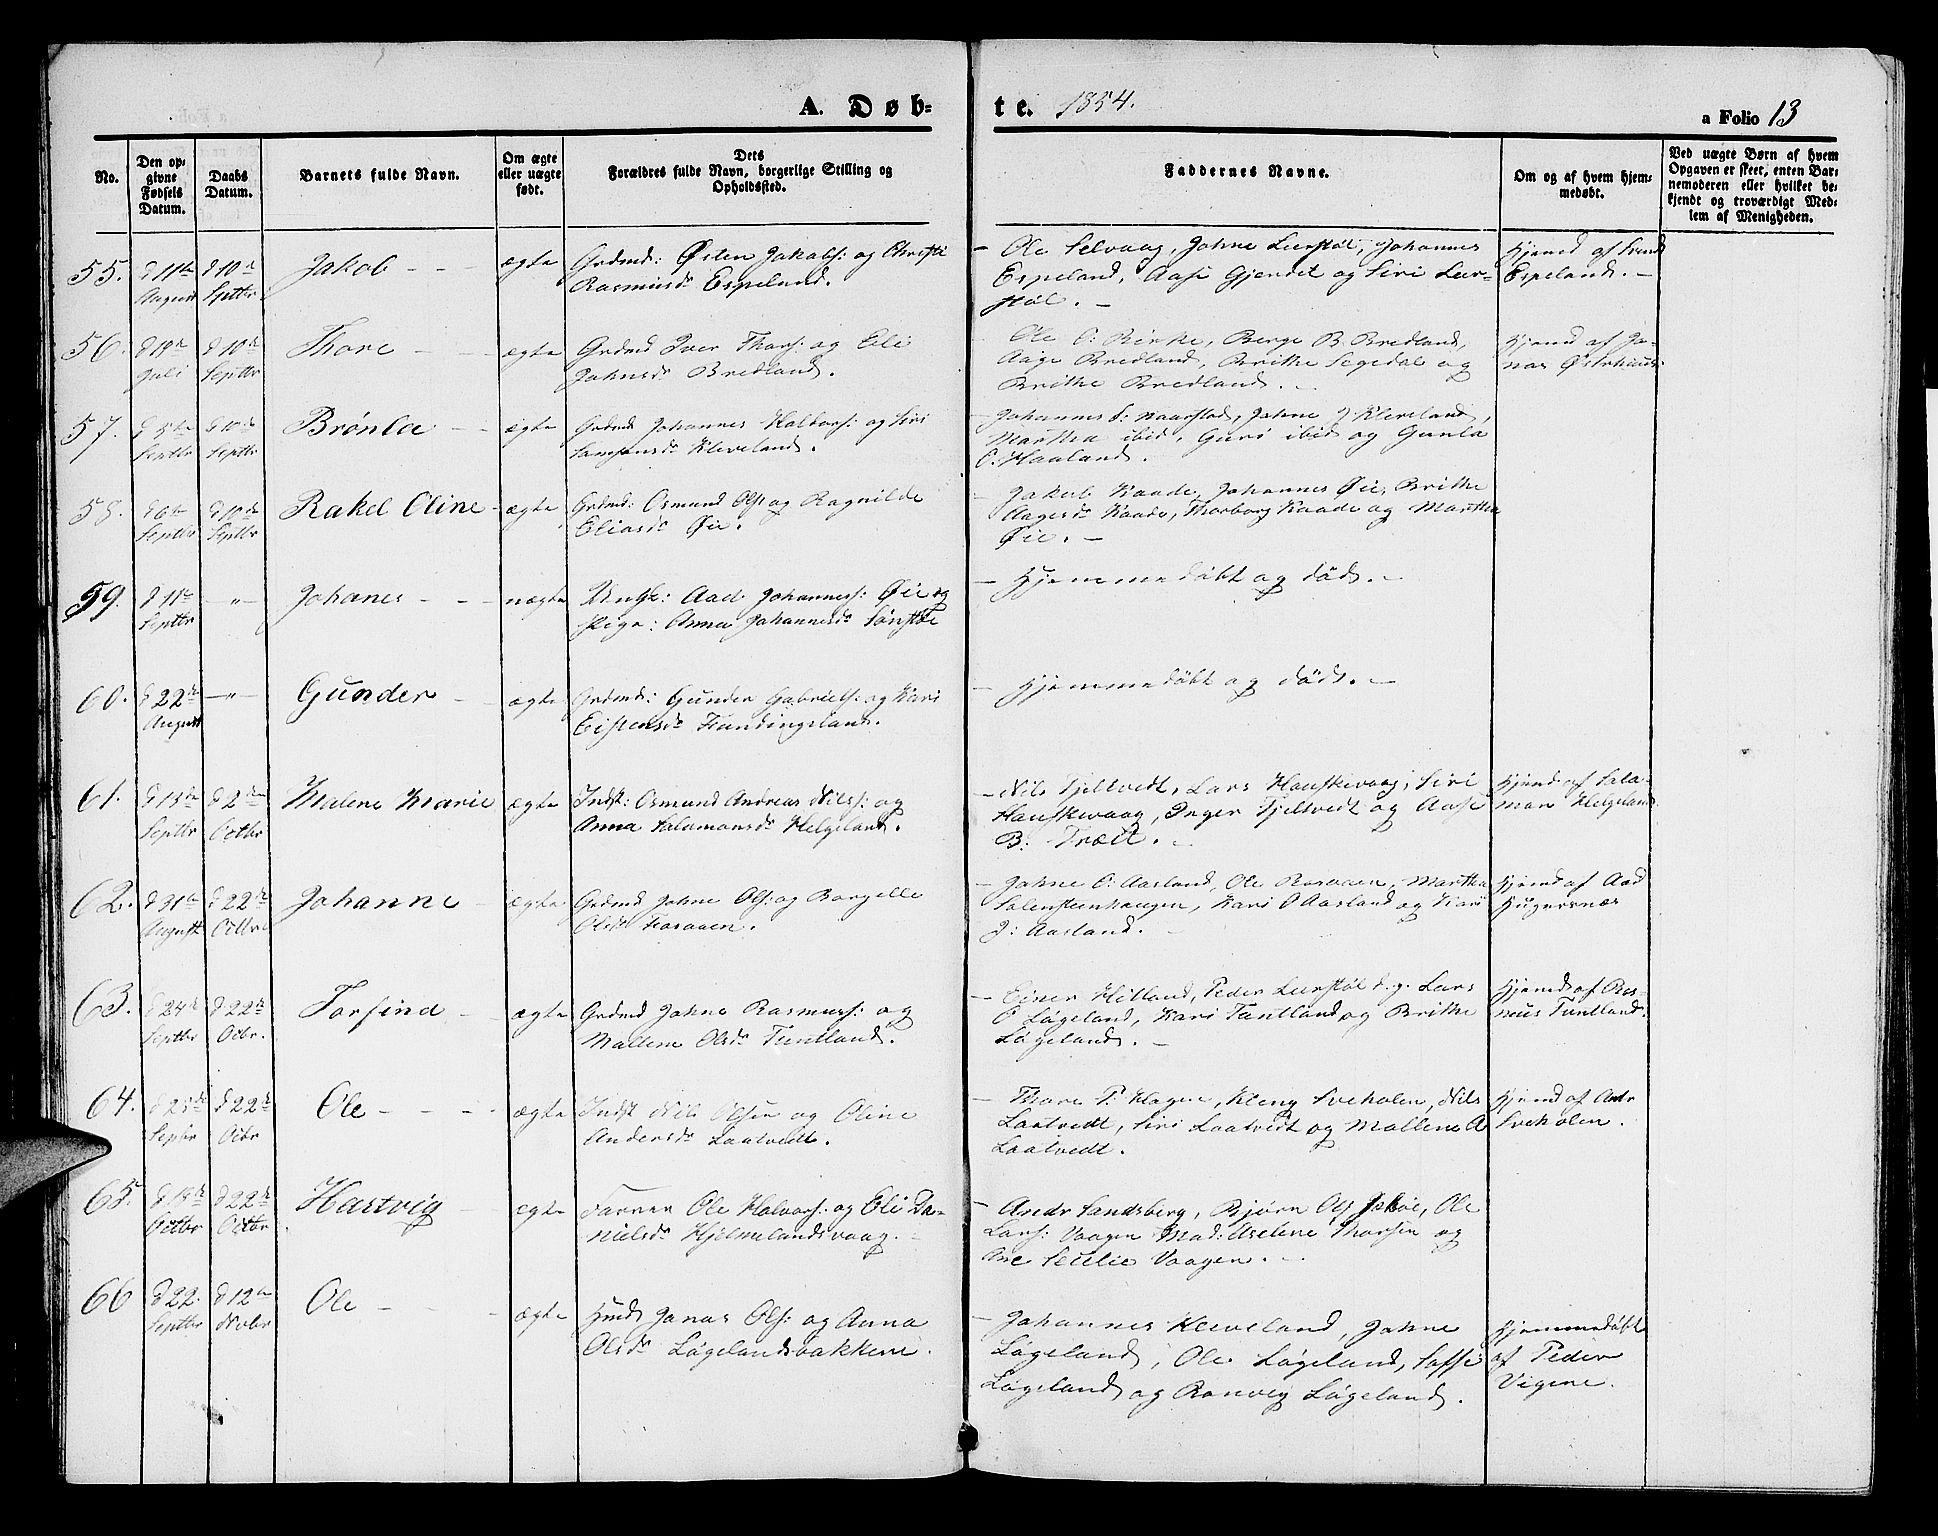 A. Døb-
te. 1854.
a Folio 13
No.
Den op-
givne
Fødsels
Datum.
Daabs
Datum.
Barnets fulde Navn.
Om ægte
eller uægte
født.
Dets
Forældres fulde Navn, borgerlige Stilling og
Opholdssted.
Faddernes Navne.
Om og af hvem hjem-
medøbt.
Ved uægte Børn af hvem
Opgaven er skeet, enten Bar-
nemoderen eller hvilket be-
kjendt og troværdigt Med-
lem af Menigheden.
55. d 11te August d 10de Septbr Jakob - - ægte
Grdmd: Østen Jakobs: og Christi
Rasmusdr Espeland.
- Ole Selvaag, Johne Leirstøl, Johannes
Espeland, Aase Gjerdet og Siri Leir-
støl. -
Hjemd af Svend
Espeland. -
56. d 19de Juli d 10de Septbr Thore - - ægte
Grdmd Iver Thors: og Eli
Johnsdr Bredland.
- Ole O: Birke, Berge B. Bredland,
Aage Bredland, Brithe Segedal og
Brithe Bredland. -
Hjemd af Jo-
nas Østrhuus.
57. d 5te Septbr d 10de Septbr Brønla - - ægte
Grdmd Johannes Haldors: og Siri
Samsonsdr Kleveland.
- Johannes S: Naarstad, Johne J: Kleveland,
Martha ibid, Guro ibid og Gunla
O: Haaland.
58. d 6te Septbr d 10de Septbr Rakel Oline - ægte
Grdmd: Osmund Ols: og Ragnilde
Eliasdr Øie.
- Jakob Kaade, Johannes Øie, Brithe
Aagesdr Kaade, Thorborg Kaade og Martha
Øie. -
59. d 11te Septbr - " - Johanes - - uægte
Ungk: Aad Johanness: Øie og
Pige: Anna Johannesdr
- Hjemmedøbt og død. -
60. d 22de August - " - Gunder - - ægte
Grdmd: Gunder Gabriels: og Kari
Eistensdr Fundingsland.
- Hjemmedøbt og død. -
61. d 13de Septbr d 2den Octbr Malene Marie ægte
Indst: Osmund Andreas Nilss: og
Anna Salamonsdr Helgeland.
- Nils Tjeltvedt, Lars Hauskevaag, Siri
Hauskevaag, Inger Tjeltvedt og Aase
B: Træet. -
Hjemd af Sala-
mon Helgeland.
62. d 31te August d 22de Octbr Johanne - ægte
Grdmd Johne Ols: og Borgelle
Olsdr
- Johne O: Aasland, Ole Martha
Kari O Aasland og Kari
J: Aasland.
Hjemd af Aad
63. d 24de Septbr d 22de Octbr. Torfind - ægte
Grdmd Johne Rasmuss: og
Mallene Olsdr Tuntland.
- Einer Hetland, Peder Leirstøl d. y. Lars
O Løgeland, Kari Tuntland og Brithe
Løgeland. -
Hjemd af Ras-
mus Tuntland.
64. d 25de Septbr d 22de Octbr Ole - - - ægte
Indst Nils Olsen og Oline
Andersdr Laatvedt.
- Thore P. Hagen, Kleng Sveholen, Nils
Laatvedt, Siri Laatvedt og Mallene A
Laatvedt.
Hjemd af Andr
Sveholen.
65. d 18de Octbr d 22de Octbr Hartvig - ægte
Farver Ole Halvors: og Eli Da-
nielsdr Hjelmelandsvaag. -
- Andr Sandsberg, Bjørn Ols: Ole
Lars: Vaagen Mad: Aselene Thorsen og
Ane Secilie Vaagen. -
66 d 22. Septbr d 12te Novbr Ole - - - ægte
Huusmd Jonas Ols: og Anna
Olsdr Løgelandsbakkene.
- Johannes Kleiveland, Johne
Løgeland, Ole Løgeland, Saffe
Løgeland og Ranveig Løgeland.
Hjemmedøbt
af Peder
Vigene.